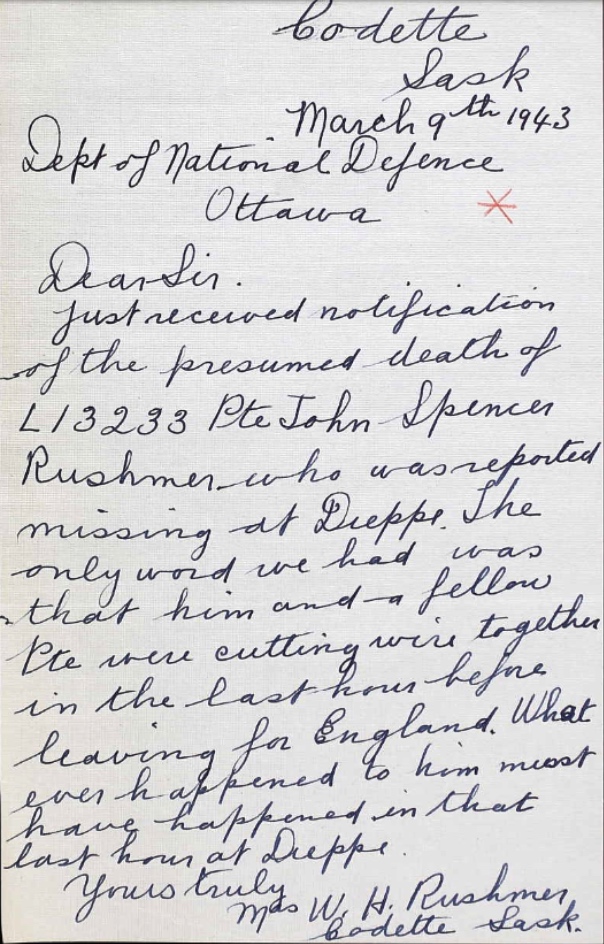 Codette
Sask
March 9th 1943
Dept of National Defence
Ottawa
Dear Sir.
Just received notification
of the presumed death of
L13233 Pte John Spencer
Rushmer who was reported
missing at Dieppe. The
only word we had was
that him and a fellow
Pte were cutting wire together
in the last hour before
leaving for England. What
ever happened to him must
have happened in that
last hour at Dieppe.
Yours truly
Mrs W. H. Rushmer
Codette Sask.